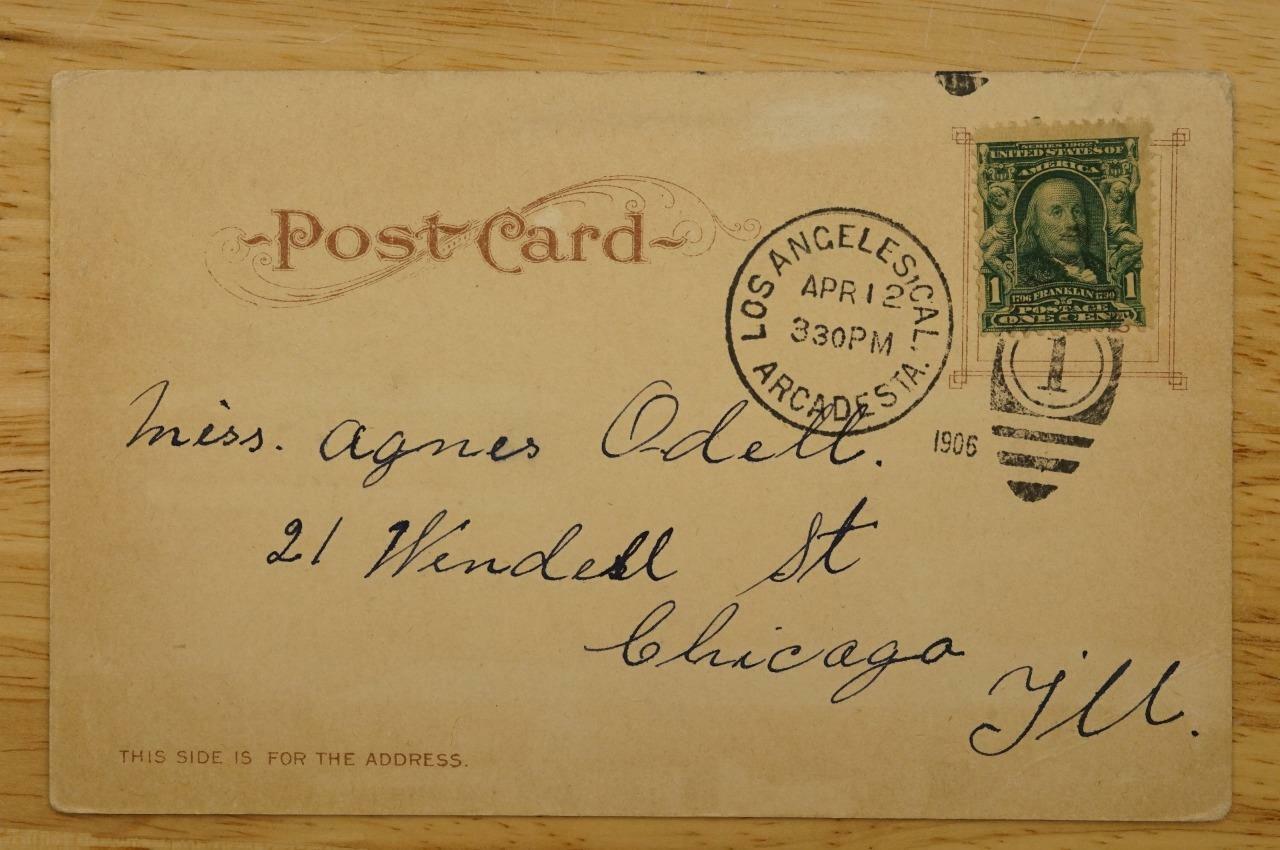 Post Card
SERIES 1902
UNITED STATES OF
AMERICA
1 1706 FRANKLIN 1790 1
POSTAGE
ONE CENT
LOS ANGELES, CAL.
APR 12
330PM
ARCADE STA.
1
1906
Miss. Agnes Odell.
21 Wendell St
Chicago
Ill.
THIS SIDE IS FOR THE ADDRESS.